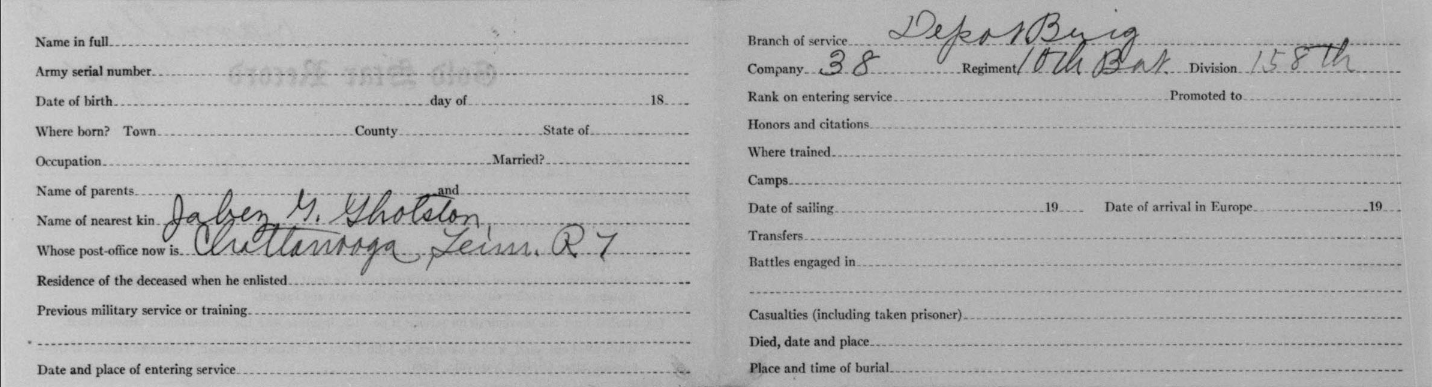 Name in full
Army serial number
Date of birth day of 18
Where born? Town County State of
Occupation Married?
Name of parents and
Name of nearest kin Jabez G. Gholston
Whose post-office now is Chattanooga, Tenn. R 7
Residence of the deceased when he enlisted
Previous military service or training
Date and place of entering service
Gold Star Record
Branch of service Depot Brig
Company 38 Regiment 10th Bat. Division 158th
Rank on entering service Promoted to
Honors and citations
Where trained
Camps
Date of sailing 19 Date of arrival in Europe 19
Transfers
Battles engaged in
Casualties (including taken prisoner)
Died, date and place
Place and time of burial